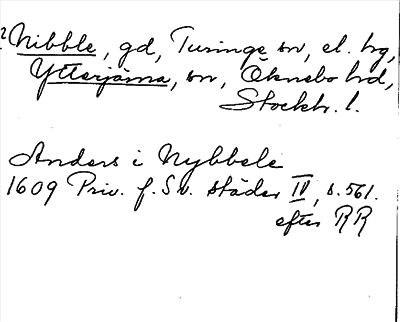 ? Nibble, gd, Turinge sn, el. hg,
Ytterjärna, sn, Öknebo hd,
Stockh. l.
Anders i Nybbele
1609 Priv. f. Sv. städer IV, s. 561.
efter RR